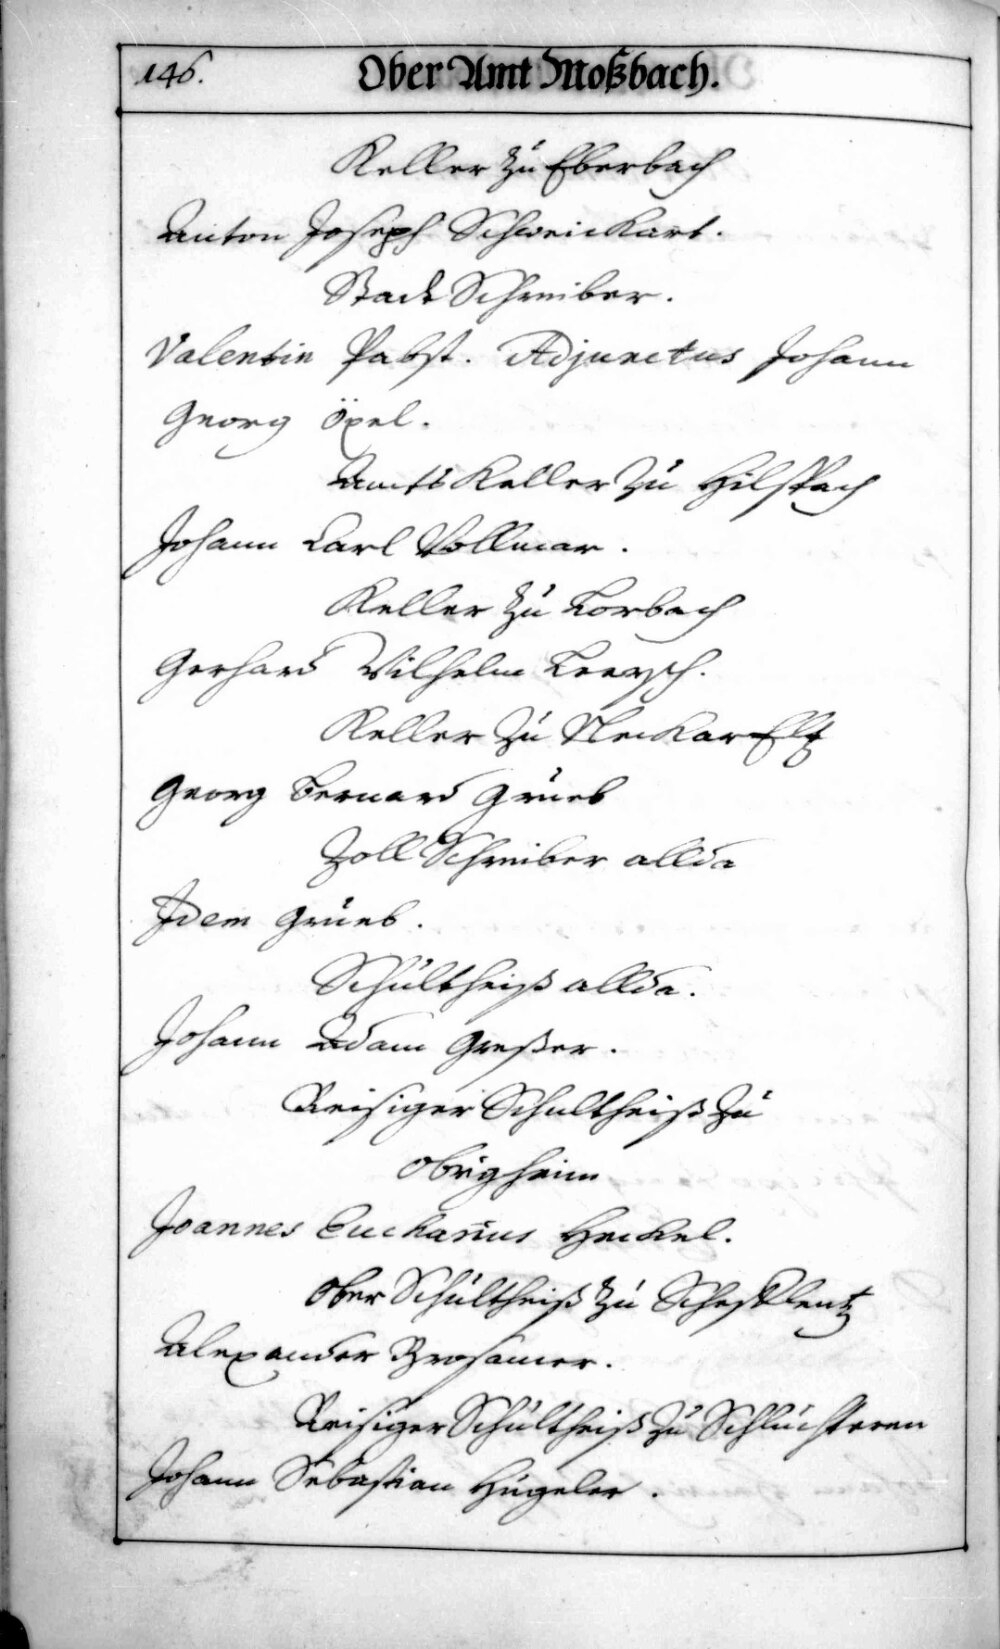 146.
Ober Amt Moßbach.
Keller zu Eberbach
Anton Joseph Schweickart.
Stadt Schreiber.
Valentin Pabst. Adjunctus Johann
Georg Öxel.
Amts Keller zu Hilspach
Johann Carl Vollmar.
Keller zu Lorbach
Gerhard Wilhelm
Keller zu NeckarEltz
Georg Bernard Grueb
Zoll Schreiber allda
Idem Grueb.
Schultheiß allda.
Johann Adam Greßer.
Reisiger Schultheiß zu
Obrigheim
Joannes Eucharius Heckel.
Ober Schultheiß zu Scheflentz
Alexander Brosamer.
Reisiger Schultheiß zu Schluchteren
Johann Sebastian Hügeler.